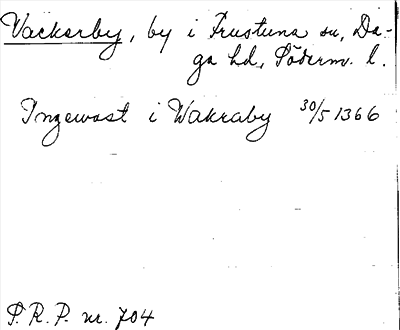 Vackerby, by i Frustuna sn, Da-
ga hd, Söderm. l.
Ingewast i Wakraby 30/5 1366
S.R.P. nr. 704